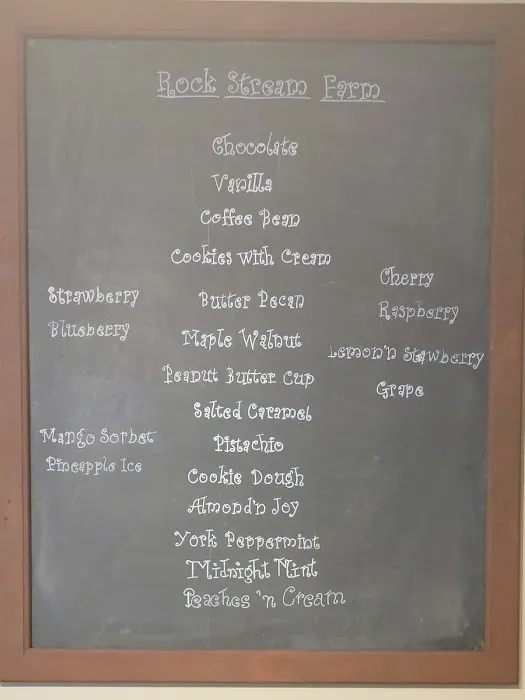 Rock Stream Farm
Chocolate
Vanilla
Coffee Bean
Cookies with Cream
Butter Pecan
Maple Walnut
Peanut Butter Cup
Salted Caramel
Pistachio
Cookie Dough
Almond'n Joy
York Peppermint
Midnight Mint
Peaches 'n Cream
Strawberry
Blueberry
Mango Sorbet
Pineapple Ice
Cherry
Raspberry
Lemon'n Stawberry
Grape